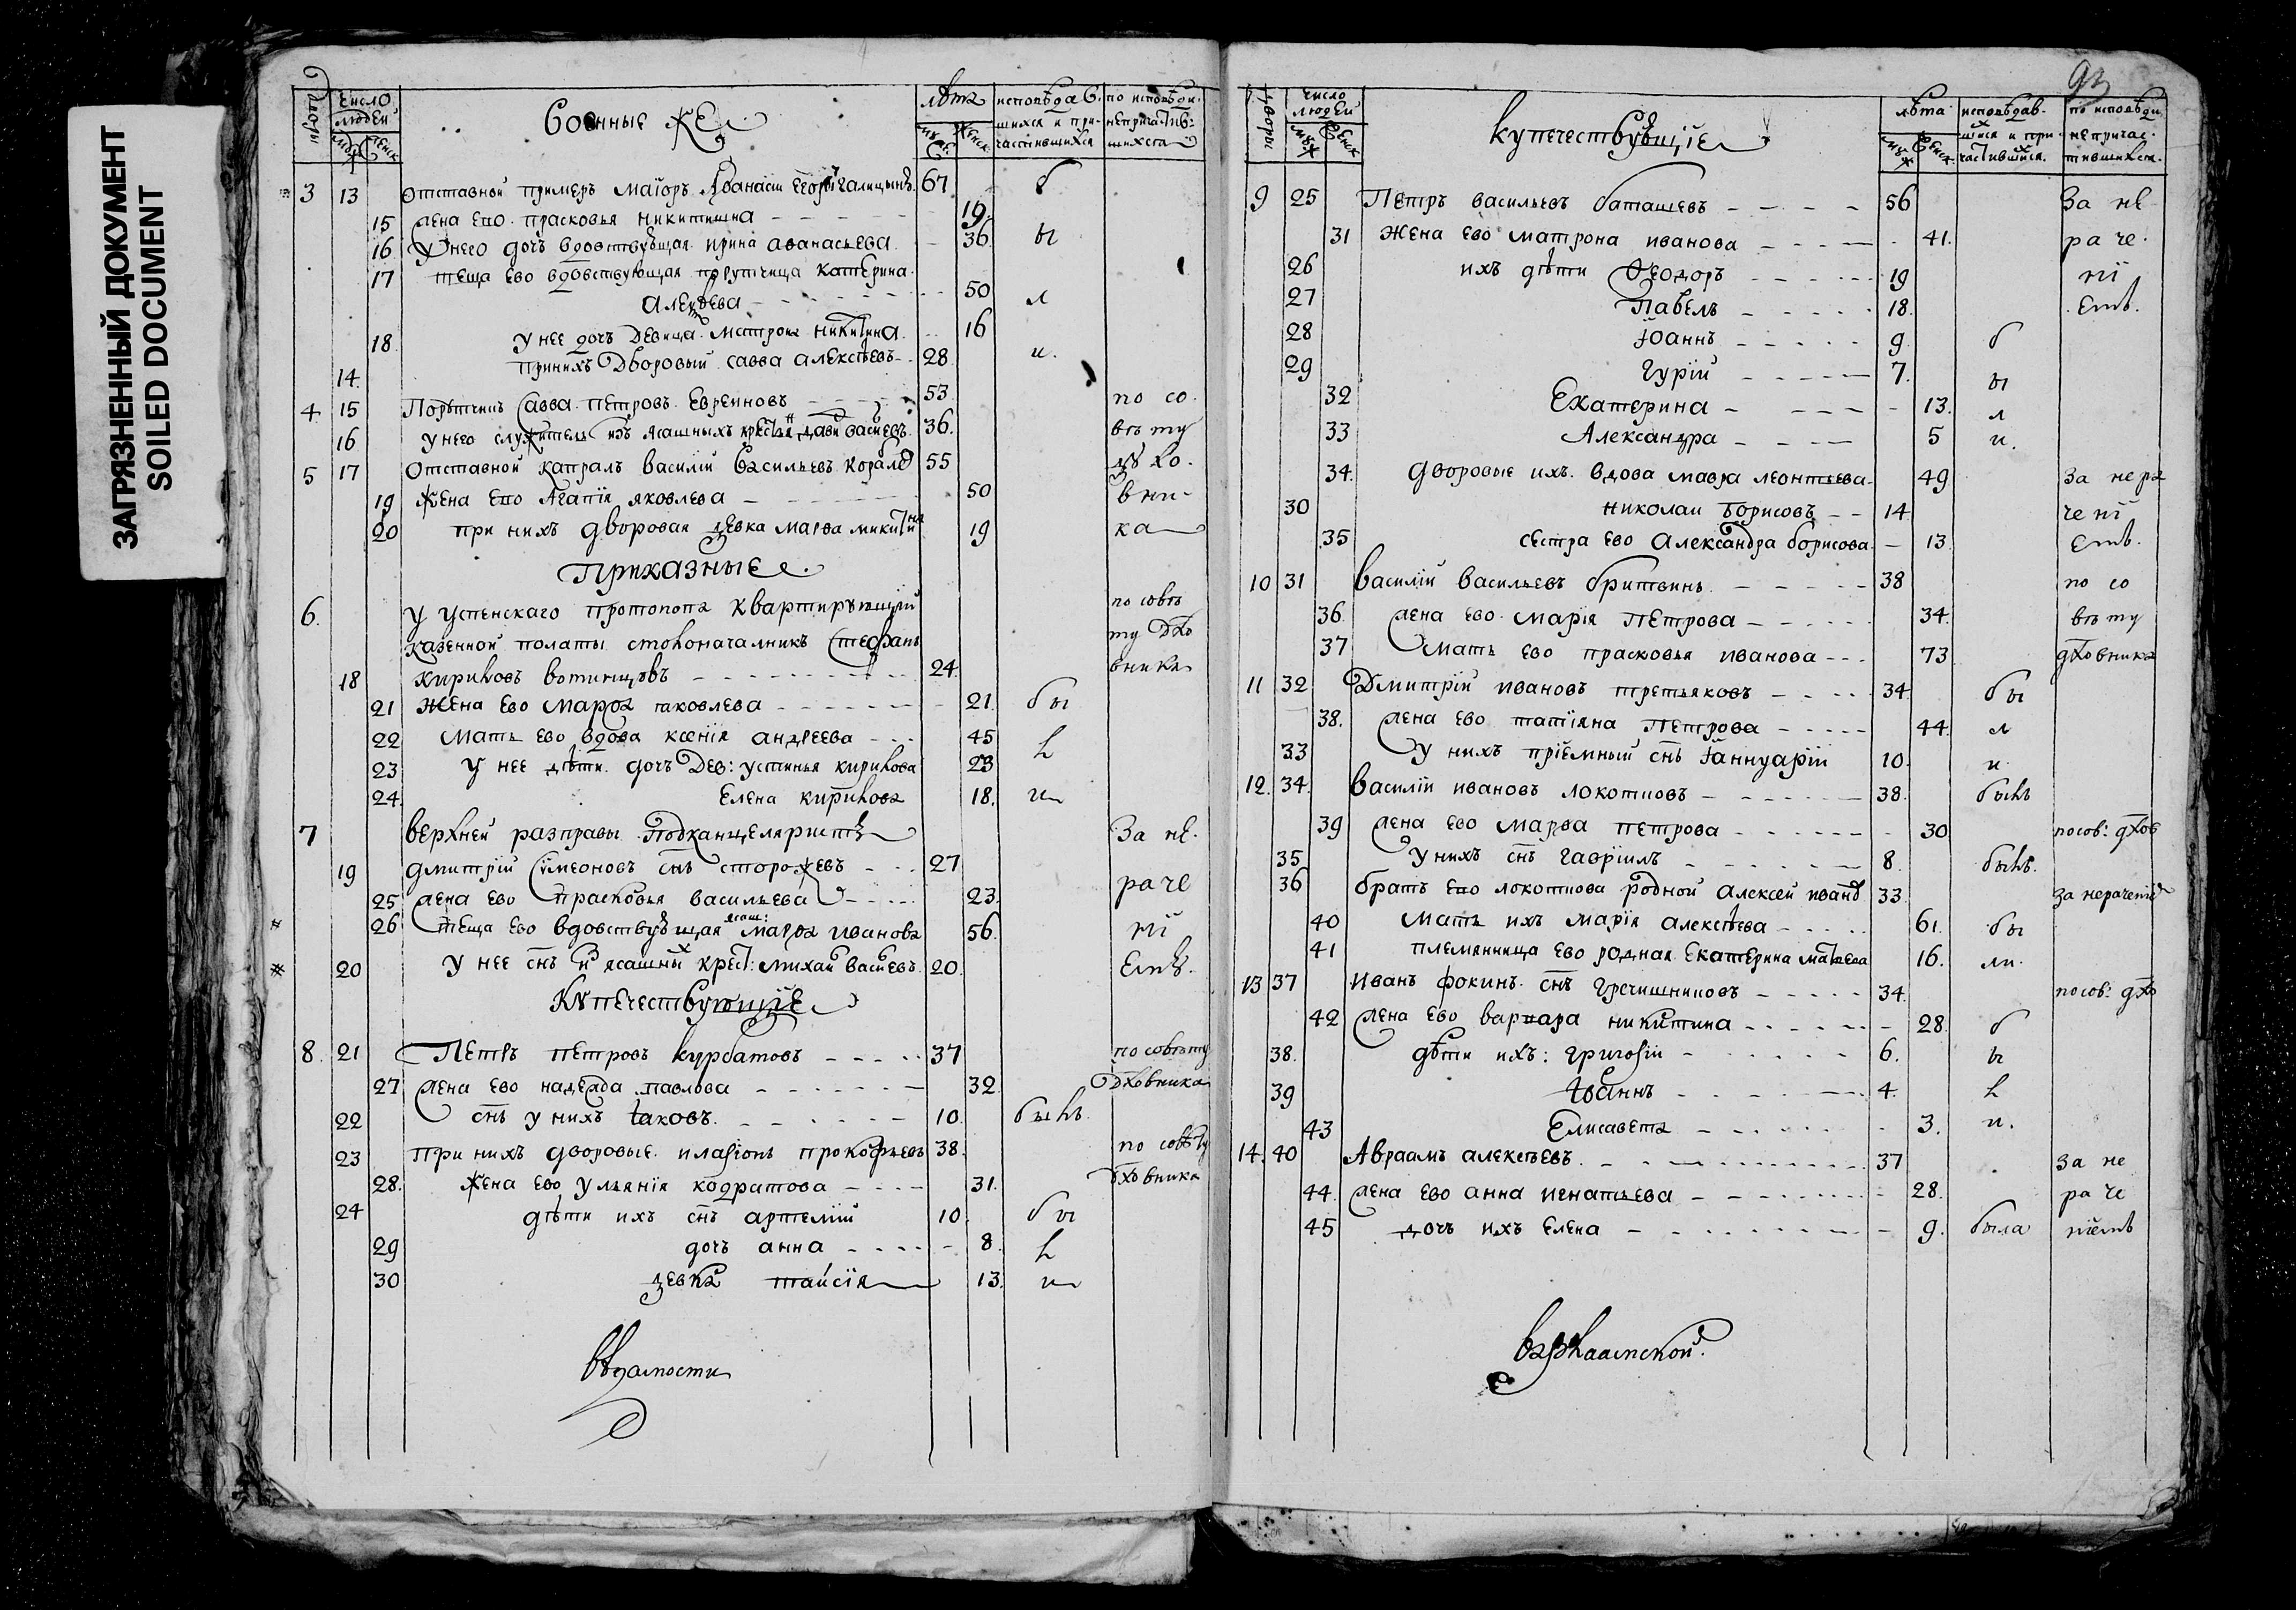 ЗАГРЯЗНЕННЫЙ ДОКУМЕНТ
SOILED DOCUMENT
Дворы
Число людей
Муж Женск
Военные же
лѣта
Муж. Женск.
исповѣдав.шихся и причастившихся
по исповѣди непричастив:шихся
3 13 отставной примеръ маіоръ Афанасіи Егоръ Галицынъ 67 б
15 Жена ево прасковья никитишна 19
16 У него дочъ вдовствующая ирина афанасьева 36 ы
17 теща ево вдовствующая порутчица катерина
50 л
18 у нее дочъ девица матрона никитина 16
14 при нихъ дворовый савва алексѣевъ 28 и.
4 15 Порутчикъ Савва петровъ Евреиновъ 53 по со
16 у него служитель изъ ясашныхъ 36. вѣту
5 17 отставной капралъ василіи васильевъ 55 дхо
19 Жена ево Агапія яковлева 50 вни
20 при нихъ дворовая девка марѳа никитина 19 ка
Приказные
6. У Успенскаго протопопа квартирующій по совѣ
казенной полаты столоначалникъ Стефанъ ту дхо
18 кириловъ 24. вника
21 Жена ево марѳа яковлева 21. бы
22 мать ево вдова ксенія андреева 45 л
23 у нее дѣти дочъ дев: устинья кирилова 23
24. Елена кирилова 18. и
7 верхней разправы подканцеляристъ За не.
19 дмитріи Сімеоновъ снъ сторожевъ 27
25 Жена ево прасковья васильева 23. раче
26 теща ево вдовствующая ясаш: марѳа иванова 56. ні
20 У нее снъ ясашны крест: михаи василевъ 20. емъ.
Купечествующіе
8. 21 Петръ петровъ курбатовъ 37 по совѣту
27 Жена ево надежда павлова 32. дховника
22 снъ у нихъ Іаковъ. 10. былъ
23 При нихъ дворовые. иларіонъ прокофьевъ 38. по совѣту
28. Жена ево ульянія кодратова 31. дховника
24 дѣти ихъ снъ артемій 10. бы
29 дочъ анна 8. л
30 девка таисія 13. и
вѣдомости
93
Дворы
число людей
Муж Женск
купечествующіе
лѣта
Муж Женск.
исповѣдав.шихся и причастившихся.
по исповѣди непричастившихся.
9 25 Петръ васильевъ баташевъ 56 За не
31 Жена ево матрона иванова 41. раче.
26 ихъ дѣти Феодоръ 19 ні
27 Павелъ 18. емъ.
28 Іоаннъ 9. б
29 Гурій 7. ы
32 Екатерина 13. л
33 Александра 5 и.
34. дворовые ихъ. вдова мавра леонтьева 49 за нера
30 николаи борисовъ 14 чені
35 сестра ево александра борисова 13. емъ.
10 31 василій васильевъ бритвинъ. 38 по со
36. Жена ево. марія петрова 34. вѣту
37 Мать ево прасковья иванова 73 дховника
11 32 Дмитріи ивановъ третьяковъ 34. бы
38. Жена ево татіяна петрова 44. л
33 У нихъ пріемный снъ Іаннуарій 10. и
12. 34. василіи ивановъ локотновъ 38. былъ
39 Жена ево марѳа петрова 30. по сов: дхов
35 У нихъ снъ гавріилъ 8. былъ.
36 братъ ево локотнова родной алексей иванов 33 за нераченіе
40 мать ихъ марія алексѣева 61. бы
41 племянница ево родная Екатерина матвеева 16. ли.
13 37 иванъ фокинъ снъ гречишниковъ 34. по сов: дхо
42 Жена ево варвара никитина 28. б
38. дѣти ихъ: григоріи 6. ы
39 Іоаннъ 4. л
43 Елисавета 3. и.
14. 40 Авраамъ алексѣевъ. 37 за не
44. Жена ево анна игнатьева 28. раче
45 дочъ ихъ елена 9. была ніемъ